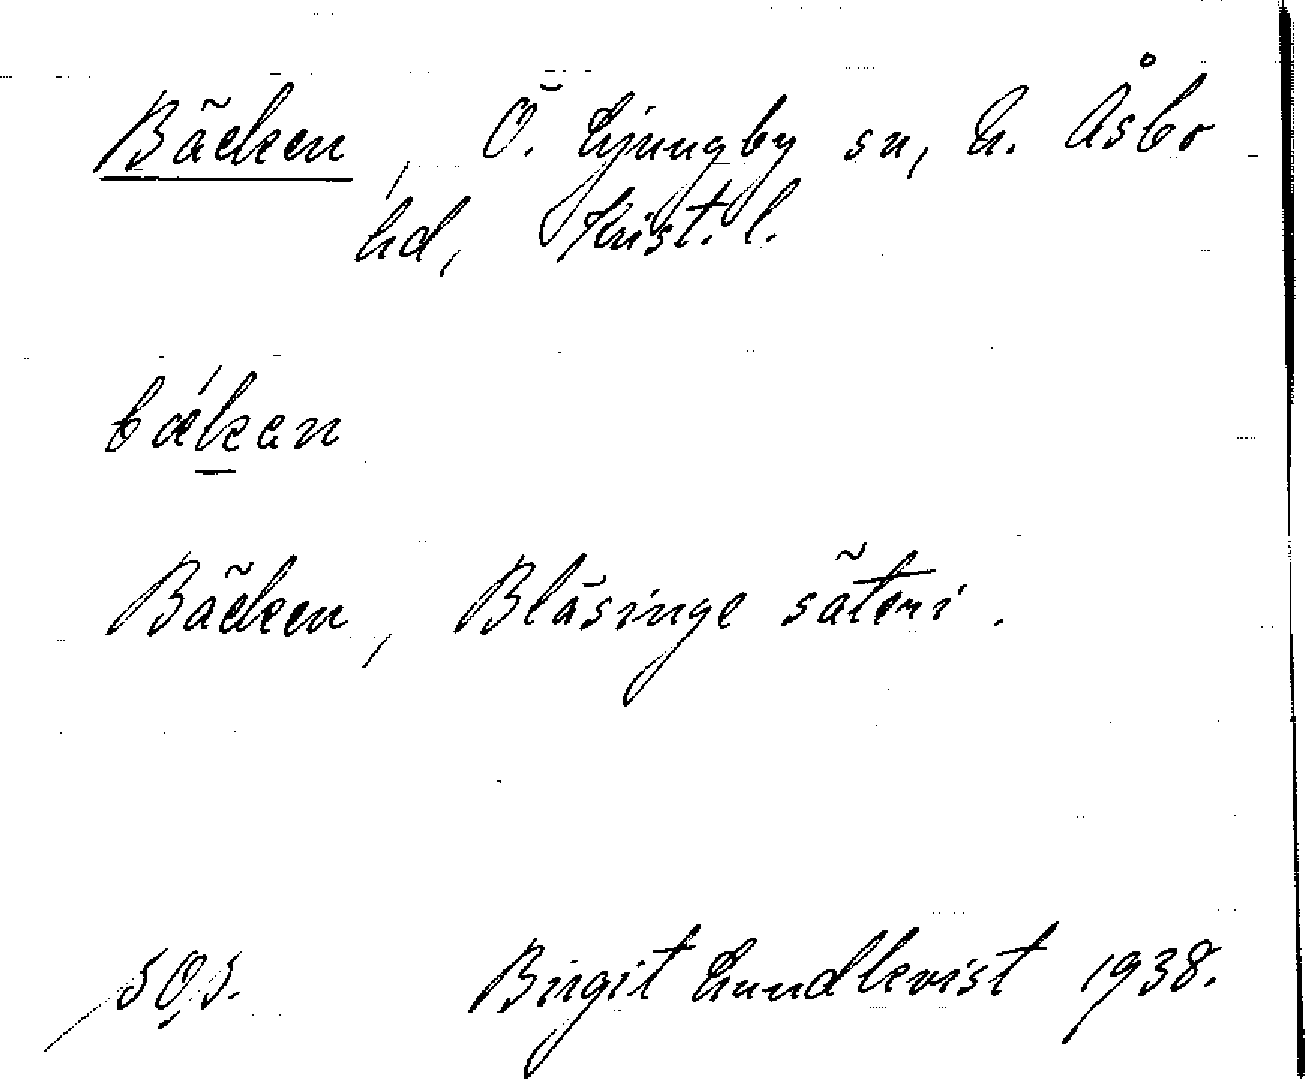 Bäcken, Ö. Ljungby sn, N. Åsbo
hd, Krist. l.
bækan
Bäcken, Blåsinge säteri.
Birgit Lundkvist 1938.